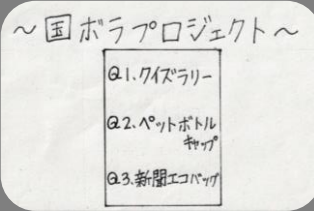 ～国ボラプロジェクト～
Q1.クイズラリー
Q2.ペットボトル
キャップ
Q3.新聞エコバッグ